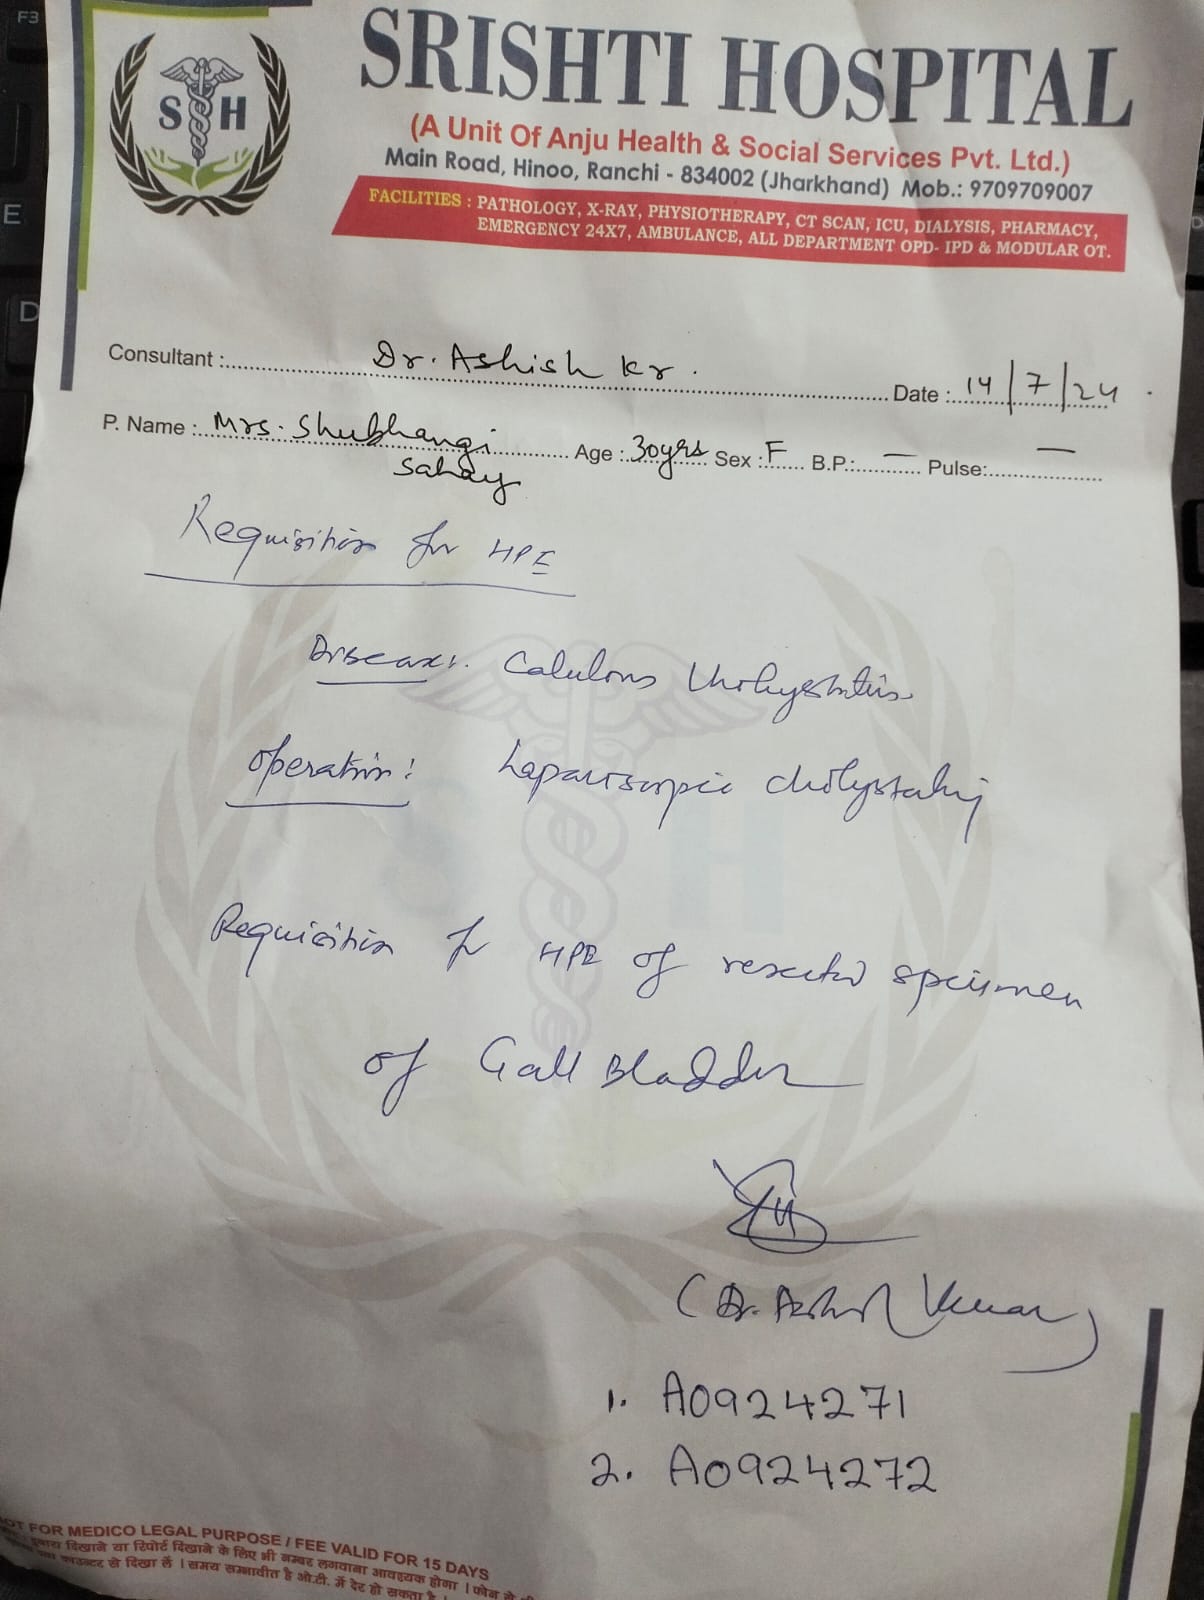 F3
E
D
S H
SRISHTI HOSPITAL
(A Unit Of Anju Health & Social Services Pvt. Ltd.)
Main Road, Hinoo, Ranchi - 834002 (Jharkhand) Mob.: 9709709007
FACILITIES : PATHOLOGY, X-RAY, PHYSIOTHERAPY, CT SCAN, ICU, DIALYSIS, PHARMACY,
EMERGENCY 24X7, AMBULANCE, ALL DEPARTMENT OPD- IPD & MODULAR OT.
Consultant : Dr. Ashish Kr. Date : 14/7/24
P. Name : Mrs. Shubhangi Sahay Age : 30yrs Sex : F B.P.: — Pulse: —
Requisition for HPE
Disease: Calulous Cholecystitis
Operation: Laparoscopic cholecystectomy
Requisition for HPE of resected specimen
of Gall Bladder
(Dr. Ashish Kumar)
1. A0924271
2. A0924272
NOT FOR MEDICO LEGAL PURPOSE / FEE VALID FOR 15 DAYS
दुबारा दिखाने या रिपोर्ट दिखाने के लिए भी नम्बर लगवाना आवश्यक होगा । फोन से
काउन्टर से दिखा लें । समय सम्भावीत है ओ.टी. में देर हो सकता है ।